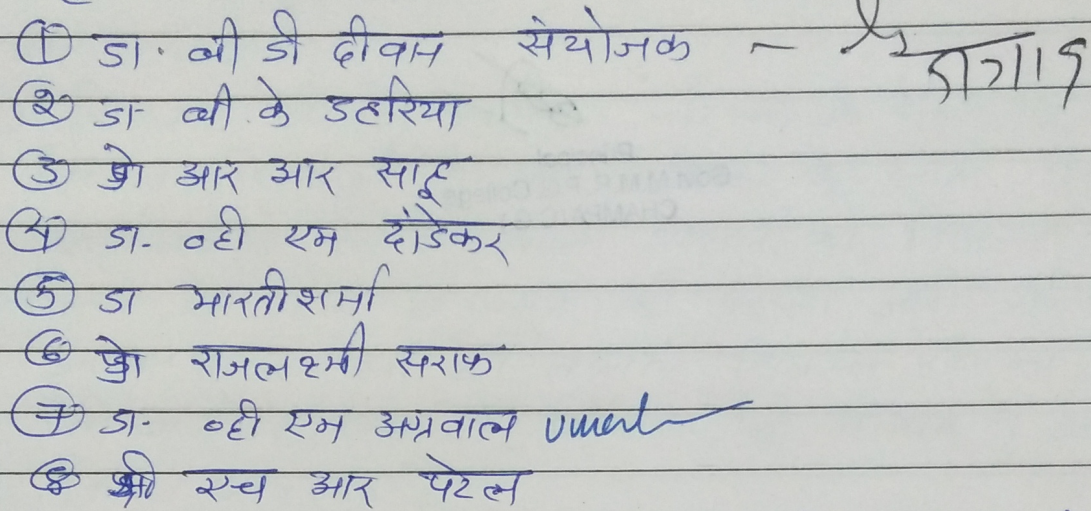 ① डा. बी डी दीवान संयोजक -
② डा बी के डहरिया
③ प्रो आर आर साहू
④ डा. व्ही एम दांडेकर
⑤ डा भारती शर्मा
⑥ प्रो राजलक्ष्मी सराफ
⑦ डा. व्ही एम अग्रवाल
⑧ श्री एच आर पटेल